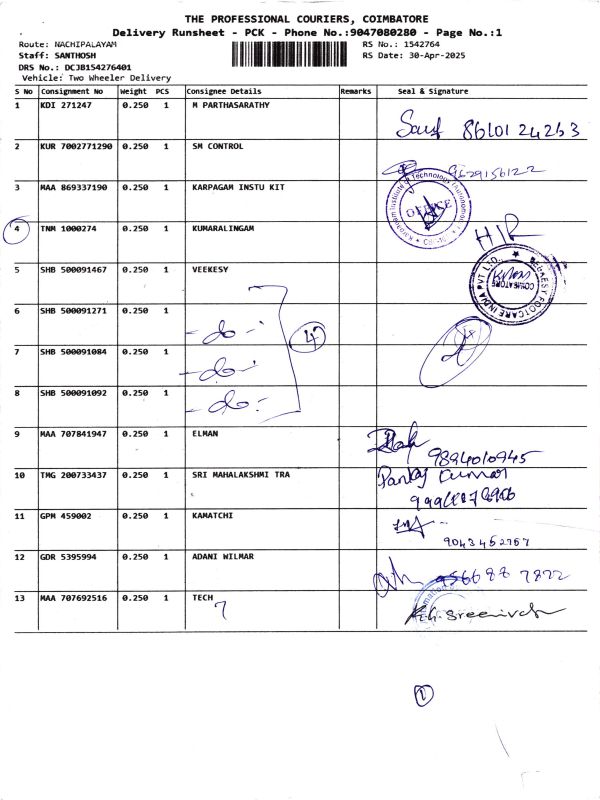 THE PROFESSIONAL COURIERS, COIMBATORE
Delivery Runsheet - PCK - Phone No.:9047080280 - Page No.:1
Route: NACHIPALAYAM
RS No.: 1542764
Staff: SANTHOSH
RS Date: 30-Apr-2025
DRS No.: DCJB154276401
Vehicle: Two Wheeler Delivery
S No Consignment No Weight PCS Consignee Details Remarks Seal & Signature
1 KDI 271247 0.250 1 M PARTHASARATHY
2 KUR 7002771290 0.250 1 SM CONTROL
9629156122
3 MAA 869337190 0.250 1 KARPAGAM INSTU KIT
OFFICE
4 TNM 1000274 0.250 1 KUMARALINGAM
5 SHB 500091467 0.250 1 VEEKESY
VEEKESY FOOTCARE INDIA PVT LTD.
COIMBATORE
6 SHB 500091271 0.250 1 - do -
4
7 SHB 500091084 0.250 1 - do -
8 SHB 500091092 0.250 1 - do -
9 MAA 707841947 0.250 1 ELMAN
9894010945
10 TMG 200733437 0.250 1 SRI MAHALAKSHMI TRA
Pankaj Kumar
11 GPM 459002 0.250 1 KAMATCHI
9043452757
12 GDR 5395994 0.250 1 ADANI WILMAR
13 MAA 707692516 0.250 1 TECH
7